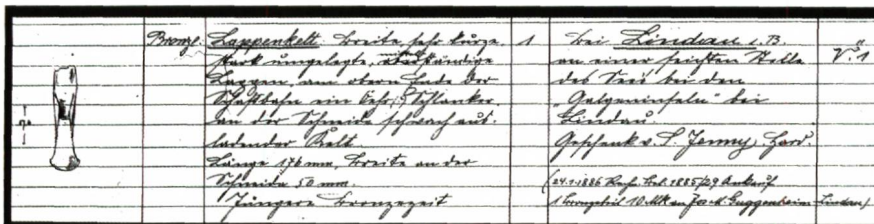 Bronze.
Lappenkelt. Breite, sehr kurze
stark umgelegte, mittelständige
Lappen, am obern Ende der
Schaftbahn ein Oehr; Schlanker,
an der Schneide schwach aus-
ladender Kelt.
Länge 176 mm, Breite an der
Schneide 50 mm.
Jüngere Bronzezeit
1
bei Lindau i. B.
an einer seichten Stelle
des Sees bei den
"Galgeninseln" bei
Lindau.
Geschenk v. S. Jenny, Hard.
(24.1.1886 1885/29 Ankauf
1 Bronzebeil 10 Mk an Jos. M. Guggenheim - Lindau)
V. 1